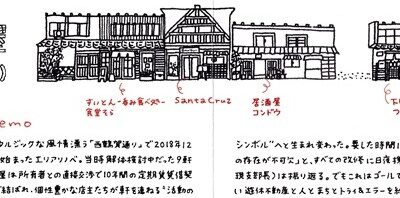 すいとん一呑み食べ処〜
食堂そら
SantaCruz
居酒屋
コンドウ
emo
ルジックな風情漂う“西鶴賀通り”で2018年12
始まったエリアリノベ。当時解体検討中だった9軒
屋は所有者との直接交渉で10年間の定期賃貸借契
結ばれ、個性豊かな店主たちが軒を連ねる“活動の
シンボル”へと生まれ変わった。
の存在が不可欠」と、すべての改修に
現支部長)は振り返る。でもこれはゴ
い遊休不動産と人とまちとトライ&エラーを